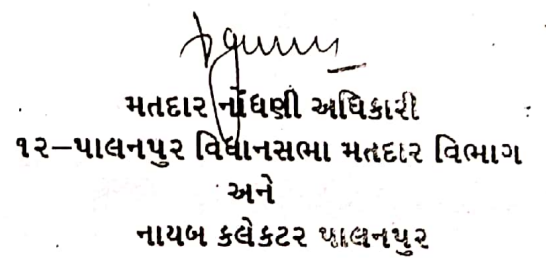 મતદાર નોંધણી અધિકારી
૧૨–પાલનપુર વિધાનસભા મતદાર વિભાગ
અને
નાયબ કલેકટર પાલનપુર